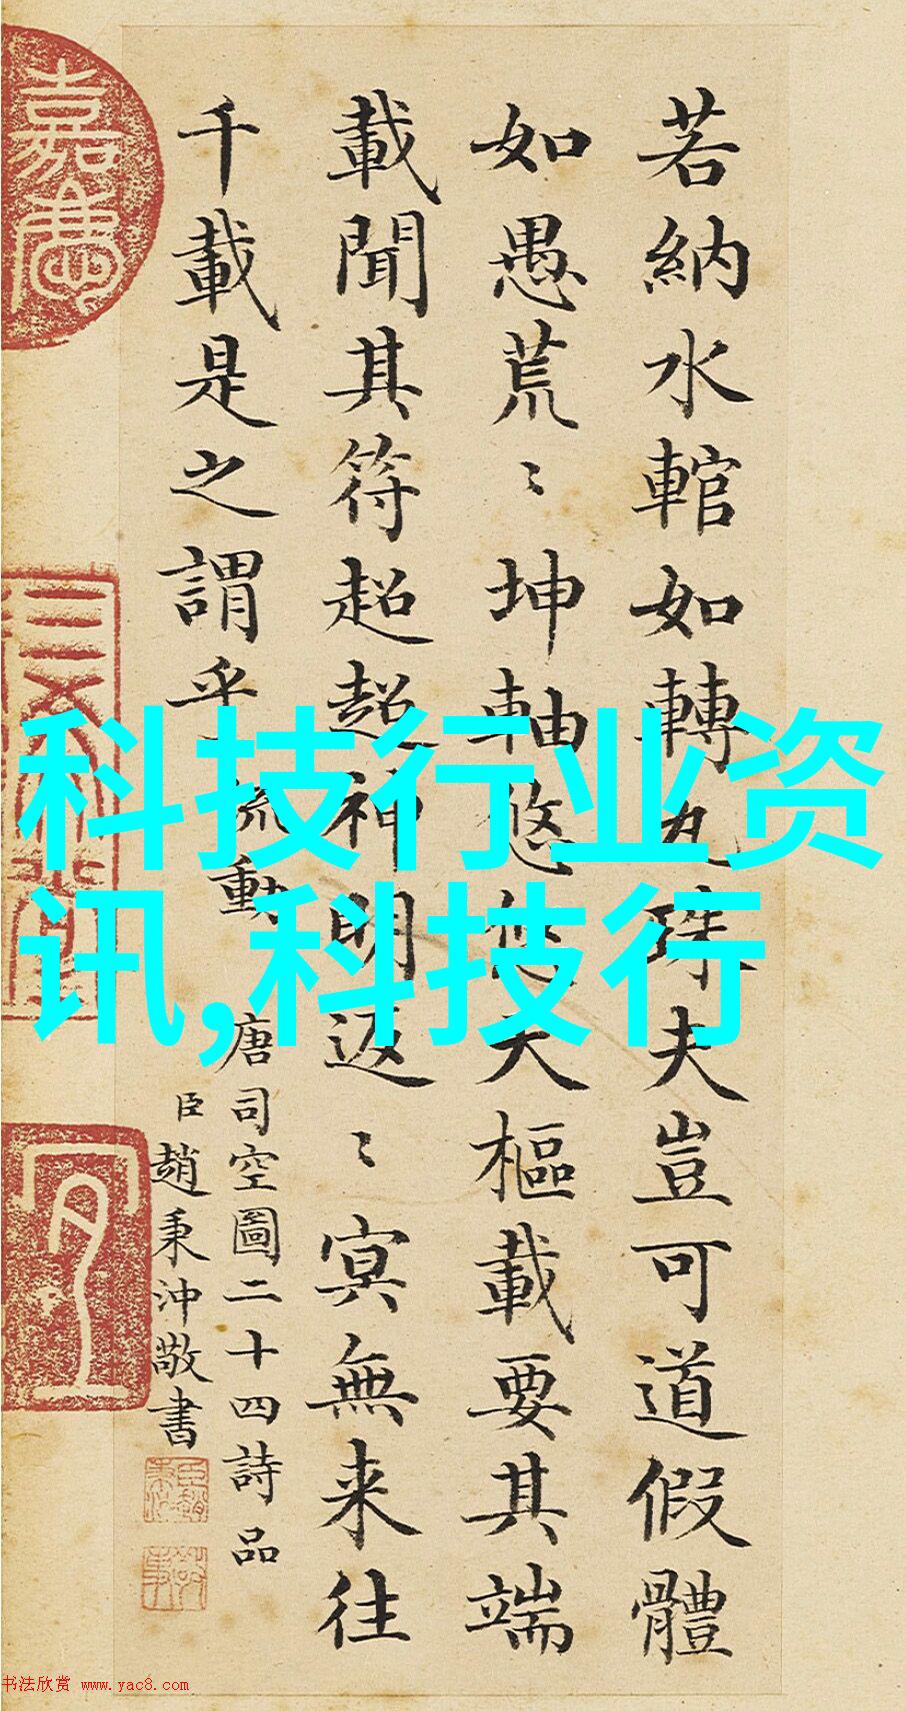 若納水輨如轉丸珠夫豈可道假體
如愚荒〻坤軸悠悠天樞載要其端
載聞其符超超神明返〻冥無来往
千載是之謂乎 流動
唐司空圖二十四詩品
臣趙秉沖敬書
嘉慶
科技行业资
讯,科技行
书法欣赏 www.yac8.com